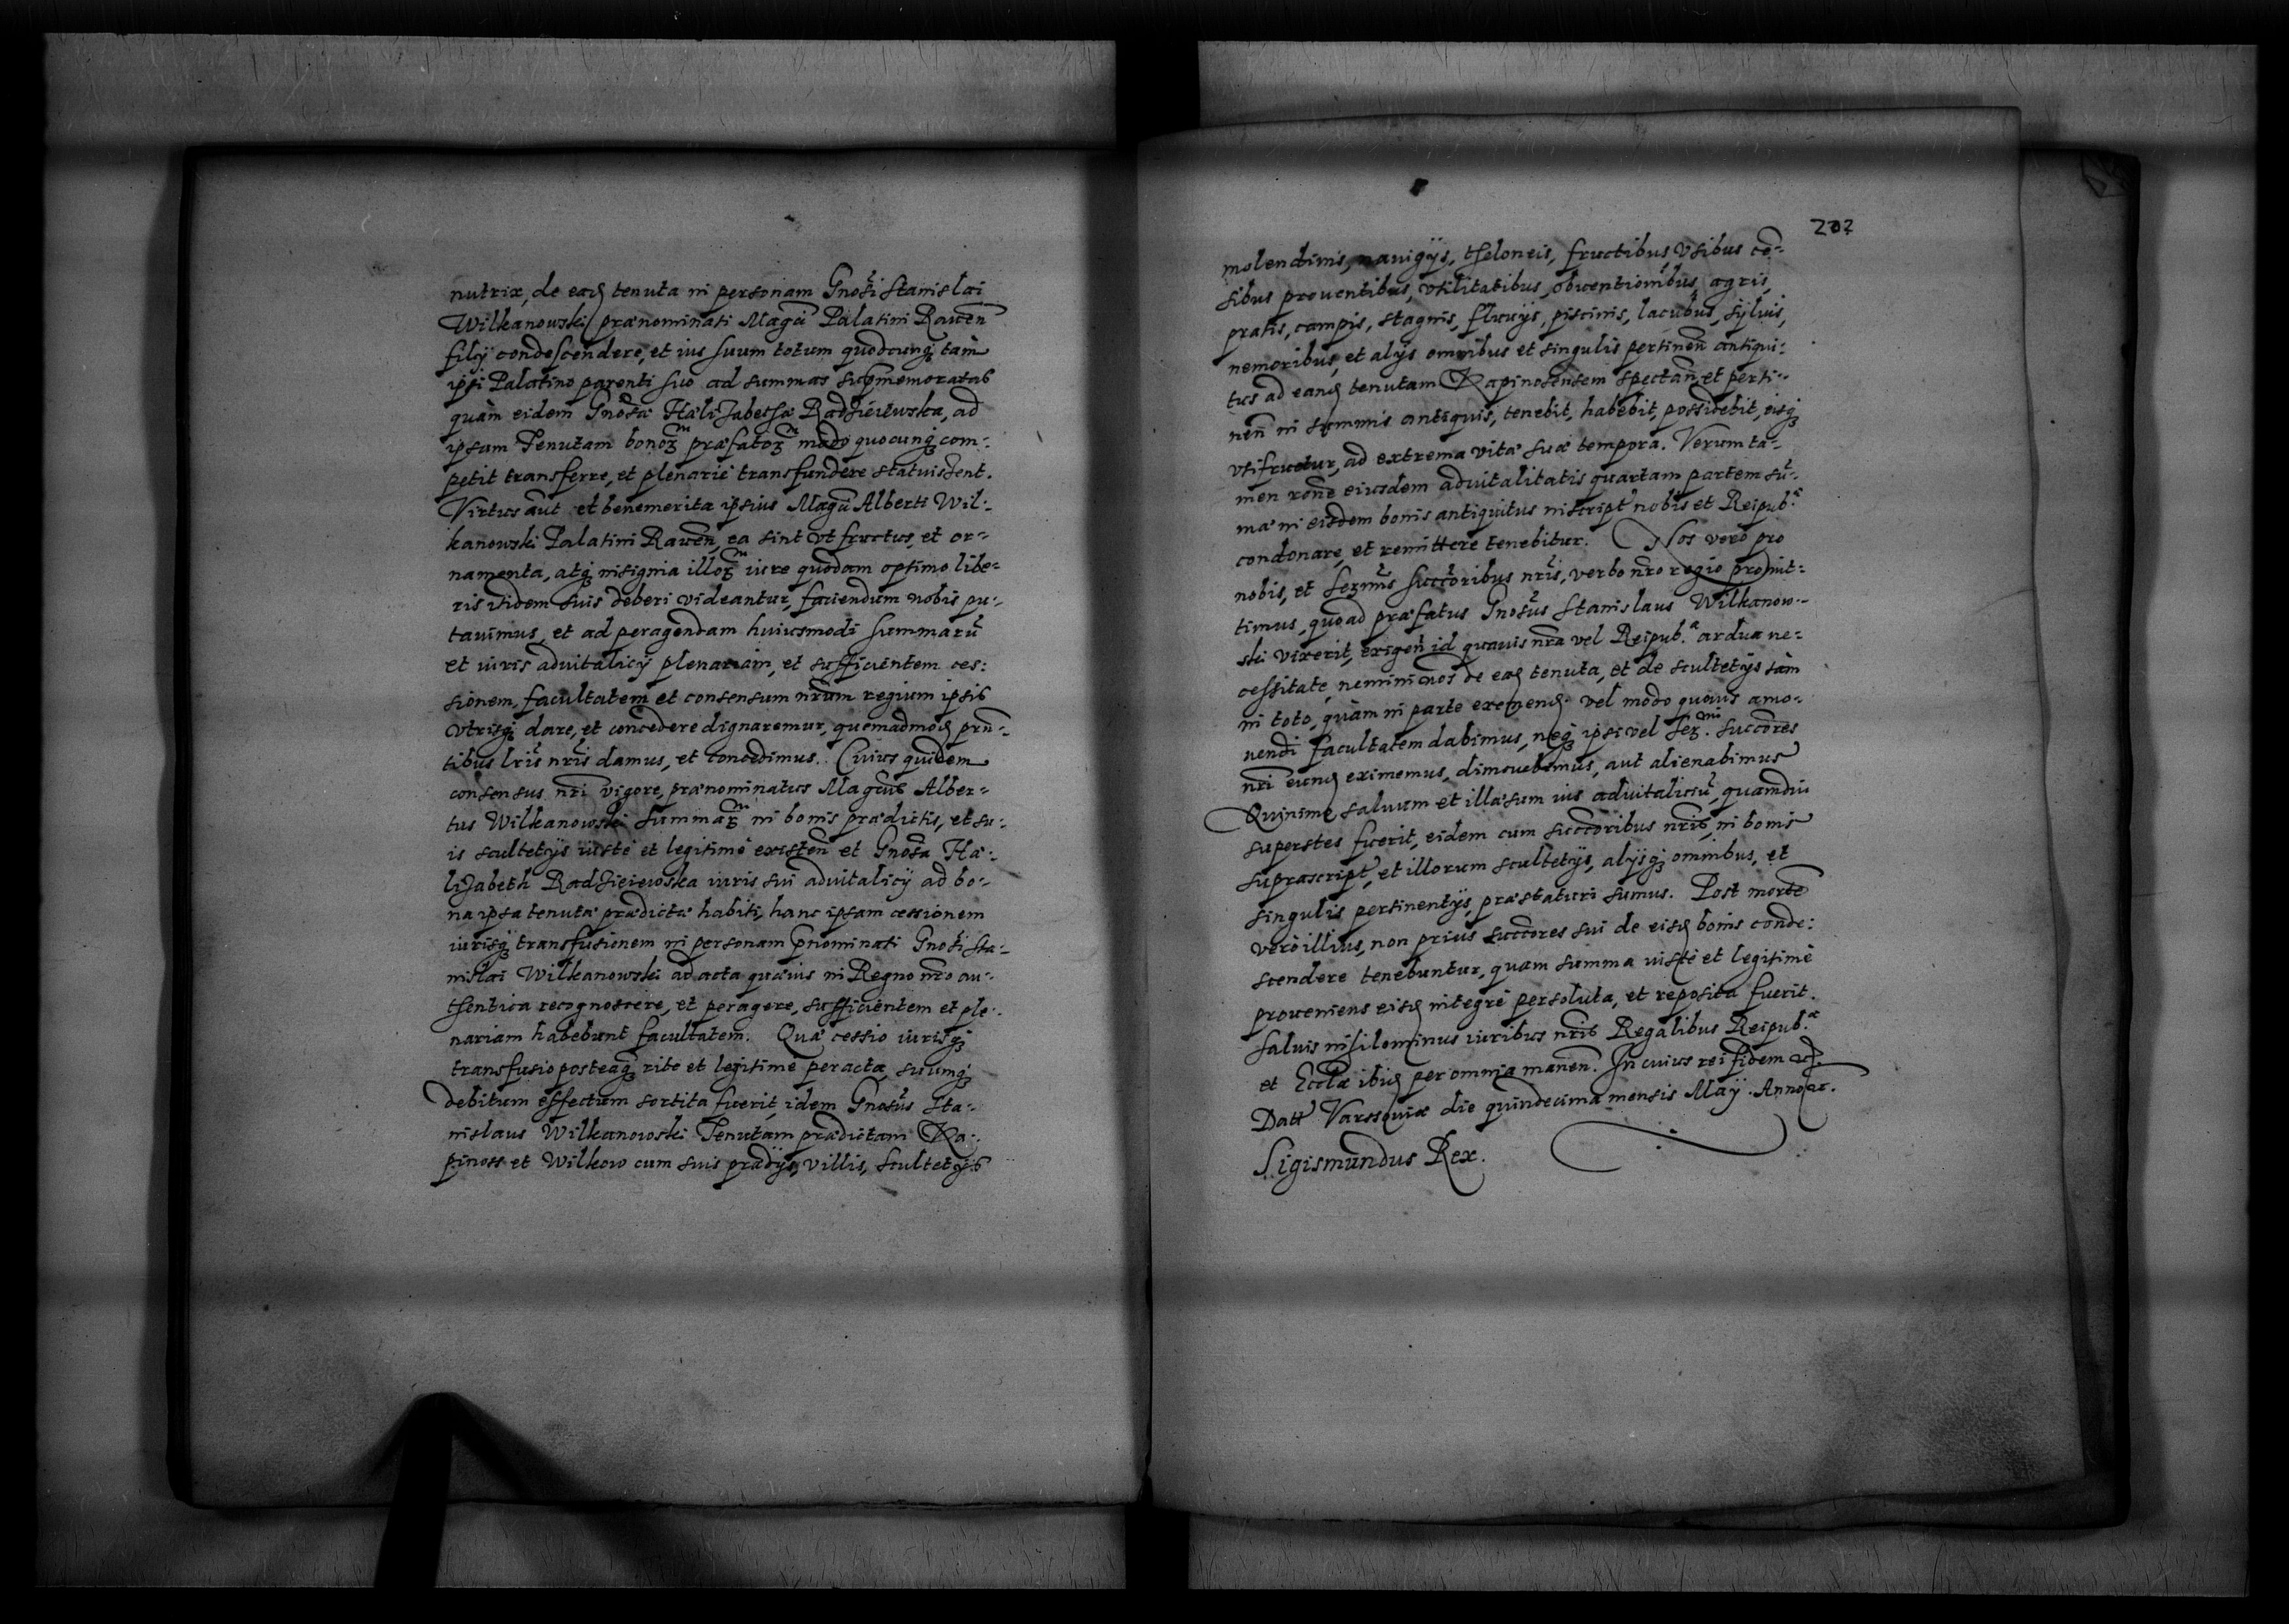 nutrix, de eadz tenuta in personam Gnosi Stanislai
Wilkanowski prænominati Magci Palatini Rawen
filij condescendere, et ius suum totum quodcunq tam
ipsi Palatino parenti suo ad summas supmemoratas
quàm eidem Gnosa Halizabetha Radzieiewska, ad
ipsam Tenutam bonorm præfatorm modo quocunq com-
petit transferre, et plenarie transfundere statuissent.
Virtus aut et benemerita ipsius Magci Alberti Wil-
kanowski Palatini Rawen, ea sint vt fructus, et or-
namenta, atq insignia illorm iure quodam optimo libe-
ris itidem suis deberi videantur, faciendum nobis pu-
tauimus, et ad peragendam huiusmodi summarũ
et iuris aduitalicij plenariam, et sufficientem ces-
sionem, facultatem et consensum nrum regium ipsis
vtrisq dare, et concedere dignaremur, quemadmodz prn-
tibus lris nris damus, et concedimus. Cuius quidem
consensus nri vigore, prænominatus Magcus Alber-
tus Wilkanowski summarm in bonis prædictis, et su-
is scultetijs iuste et legitimè existen et Gnosa Ha-
lizabeth Radzieiewska iuris sui aduitalicij ad bo-
na ipsa tenutæ prædictæ habiti, hanc ipsam cessionem
iurisq transfusionem in personam pnominati Gnosi Sta-
nislai Wilkanowski ad acta quæuis in Regno nro au-
thentica recognoscere, et peragere, sufficientem et ple-
nariam habebunt facultatem. Quæ cessio iurisq
transfusio posteaq rite et legitime peracta, suumq
debitum effectum sortita fuerit, idem Gnosus Sta-
nislaus Wilkanowski Tenutam prædictam Ra-
pinoss et Wilkow cum suis prædijs, villis, scultetijs
202
molendinis, nauigijs, theloneis, fructibus, vsibus cẽ-
sibus prouentibus, vtilitatibus, obuentionibus, agris,
pratis, campis, stagnis, fluuijs, piscinis, lacubus, syluis,
nemoribus, et alijs omnibus et singulis pertinen antiqui-
tus ad eandz tenutam Rapinosensem spectan et perti-
nen in summis antiquis, tenebit, habebit, possidebit, eisq
vtifruetur, ad extrema vitæ suæ tempora. Verum ta-
men rone eiusdem aduitalitatis quartam partem sũ-
mæ in eisdem bonis antiquitus inscript nobis et Reipub.æ
condonare, et remittere tenebitur. Nos vero pro
nobis, et Sermis succoribus nris, verbo nro regio promit-
timus, quoad præfatus Gnosus Stanislaus Wilkanow-
ski vixerit, exigen id quauis nra vel Reipub.æ ardua ne-
cessitate, nemini nos de eadz tenuta, et de scultetijs tàm
in toto, quàm in parte exemendz vel modo quouis amo-
uendi facultatem dabimus, neq ipsi vel Ser.mi succores
nri eundz eximemus, dimouebimus, aut alienabimus
Quinimo saluum et illæsum ius aduitaliciũ, quamdiu
superstes fuerit, eidem cum succoribus nris, in bonis
suprascript, et illorum scultetijs, alijsq omnibus, et
singulis pertinentijs, præstaturi sumus. Post mortẽ
verò illius, non prius succores sui de eisdz bonis conde-
scendere tenebuntur, quam summa iustè et legitimè
proueniens eisdz integrè persoluta, et reposita fuerit.
Saluis nihilominus iuribus nris Regalibus Reipub.æ
et Ecclæ ibidz per omnia manen. In cuius rei fidem etc
Datt Varssouiæ die quindecima mensis Maij. Anno etc.
Sigismundus Rex.